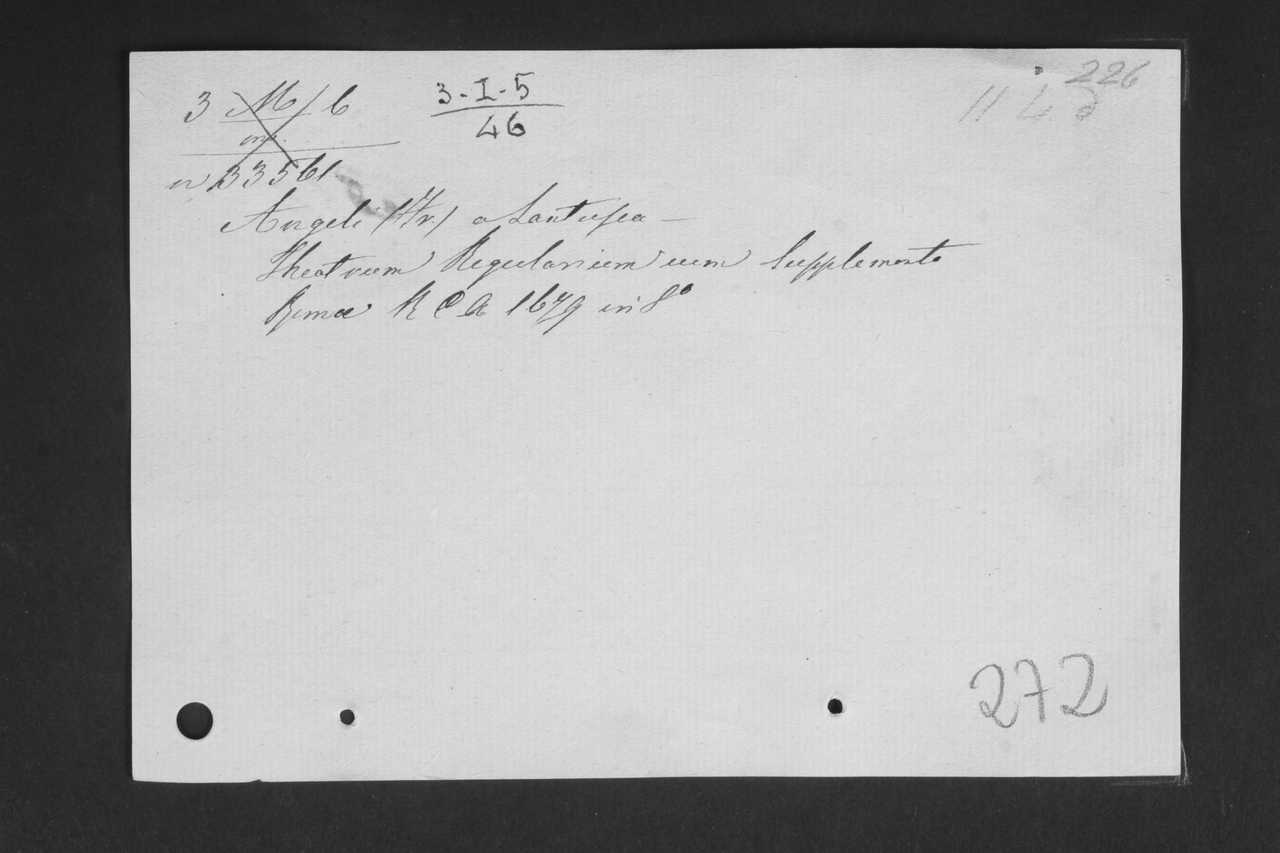 3 M/6 3-I-5
inf. 46
226
n 33561
Angeli (Fr.) a Lantusca —
Theatrum Regularium cum Supplemento
Romæ R C A 1679 in 8º
272